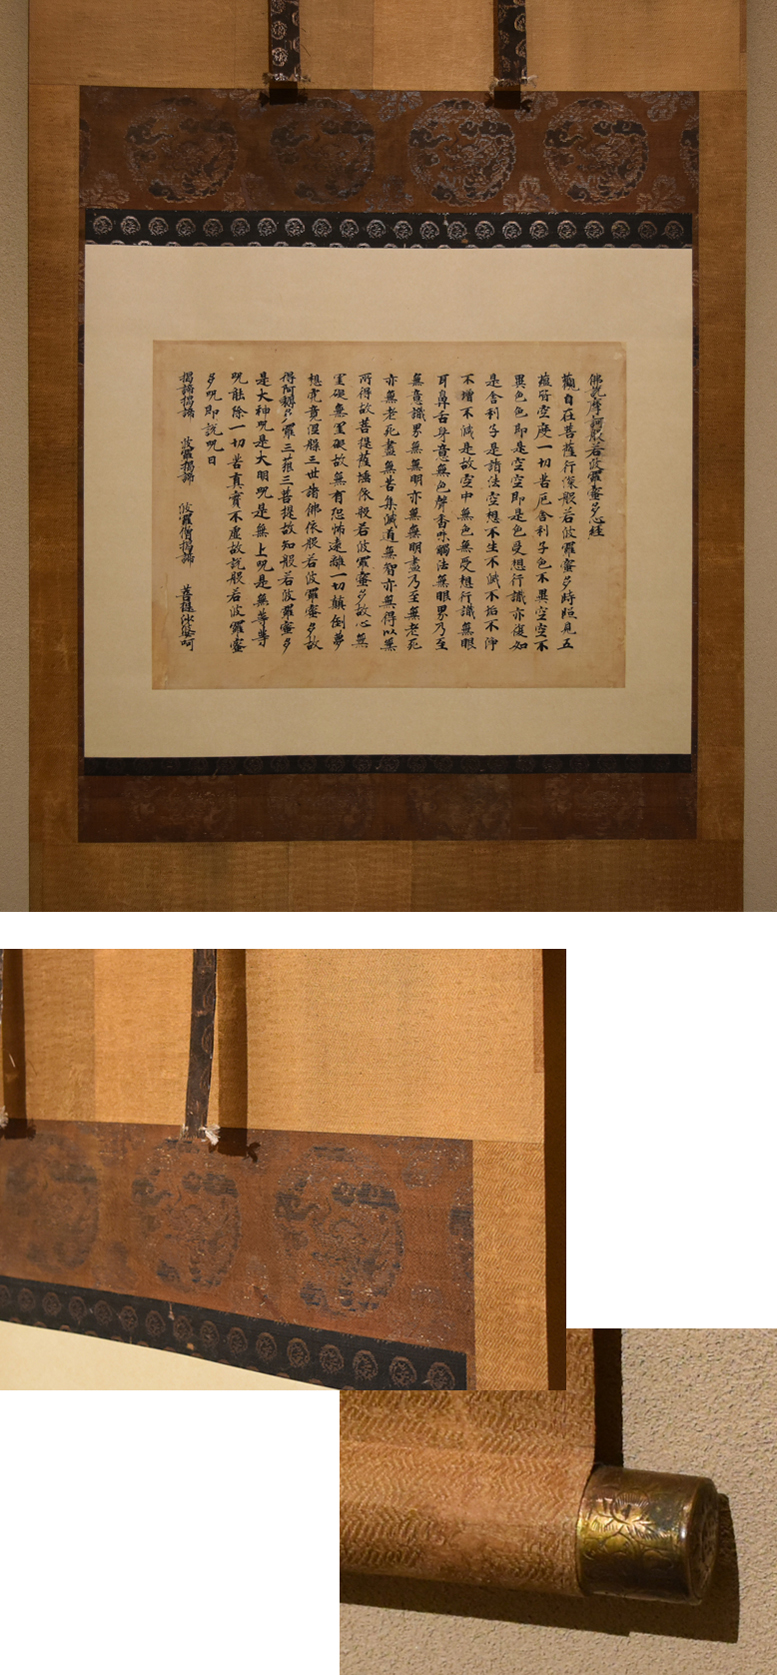 佛說摩訶般若波羅蜜多心経
觀自在菩薩行深般若波羅蜜多時照見五
蘊皆空度一切苦厄舎利子色不異空空不
異色色即是空空即是色受想行識亦復如
是舎利子是諸法空想不生不滅不垢不淨
不增不減是故空中無色無受想行識無眼
耳鼻舌身意無色聲香味觸法無眼界乃至
無意識界無無明亦無無明盡乃至無老死
亦無老死盡無苦集滅道無智亦無得以無
所得故菩提薩埵依般若波羅蜜多故心無
罣礙無罣礙故無有恐怖遠離一切顛倒夢
想究竟涅槃三世諸佛依般若波羅蜜多故
得阿耨多羅三藐三菩提故知般若波羅蜜多
是大神呪是大明呪是無上呪是無等等
呪能除一切苦真實不虛故說般若波羅蜜
多呪即說呪曰
揭諦揭諦 波羅揭諦 波羅僧揭諦 菩提沙婆呵